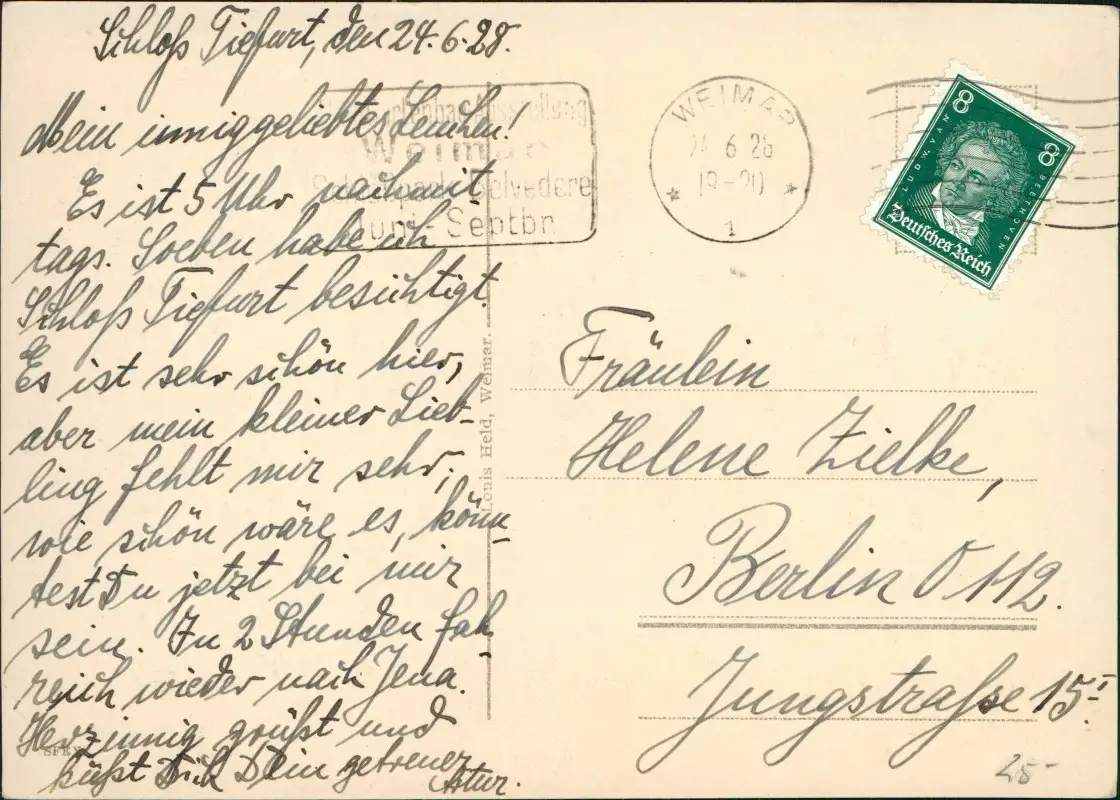 Schloß Tiefurt, den 24.6.28.
Mein inniggeliebtes Lenchen!
Es ist 5 Uhr nachmit-
tags. Soeben habe ich
Schloß Tiefurt besichtigt.
Es ist sehr schön hier,
aber mein kleiner Lieb-
ling fehlt mir sehr;
wie schön wäre es, könn-
test Du jetzt bei mir
sein. In 2 Stunden fah-
re ich wieder nach Jena.
Herzinnig grüßt und
küßt Dich Dein getreuer
Artur.
Weimar
Belvedere
Juni-Septbr.
WEIMAR
24.6.28
19-20
1
8
8
LUDW. VAN
BEETHOVEN
Deutsches Reich
Louis Held, Weimar.
Fräulein
Helene Zielke,
Berlin O 112.
Jungstraße 15 I.
25-